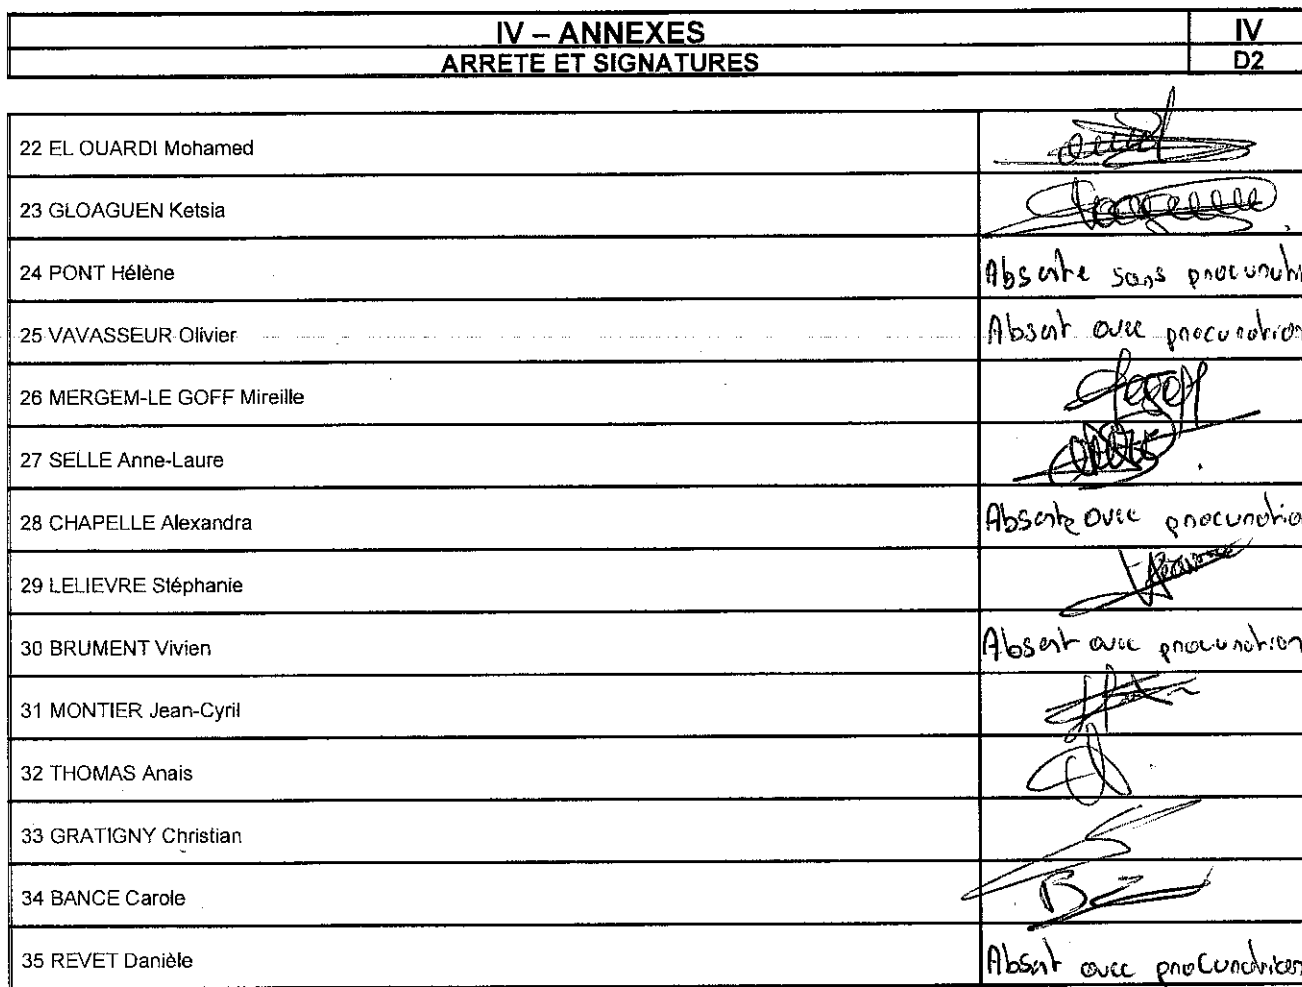 IV – ANNEXES
IV
ARRETE ET SIGNATURES
D2
22 EL OUARDI Mohamed
23 GLOAGUEN Ketsia
24 PONT Hélène
Absente sans
25 VAVASSEUR Olivier
Absent avec procuration
26 MERGEM-LE GOFF Mireille
27 SELLE Anne-Laure
28 CHAPELLE Alexandra
Absente avec procuratio
29 LELIEVRE Stéphanie
30 BRUMENT Vivien
Absent avec procuration
31 MONTIER Jean-Cyril
32 THOMAS Anais
33 GRATIGNY Christian
34 BANCE Carole
35 REVET Danièle
Absent avec procuration